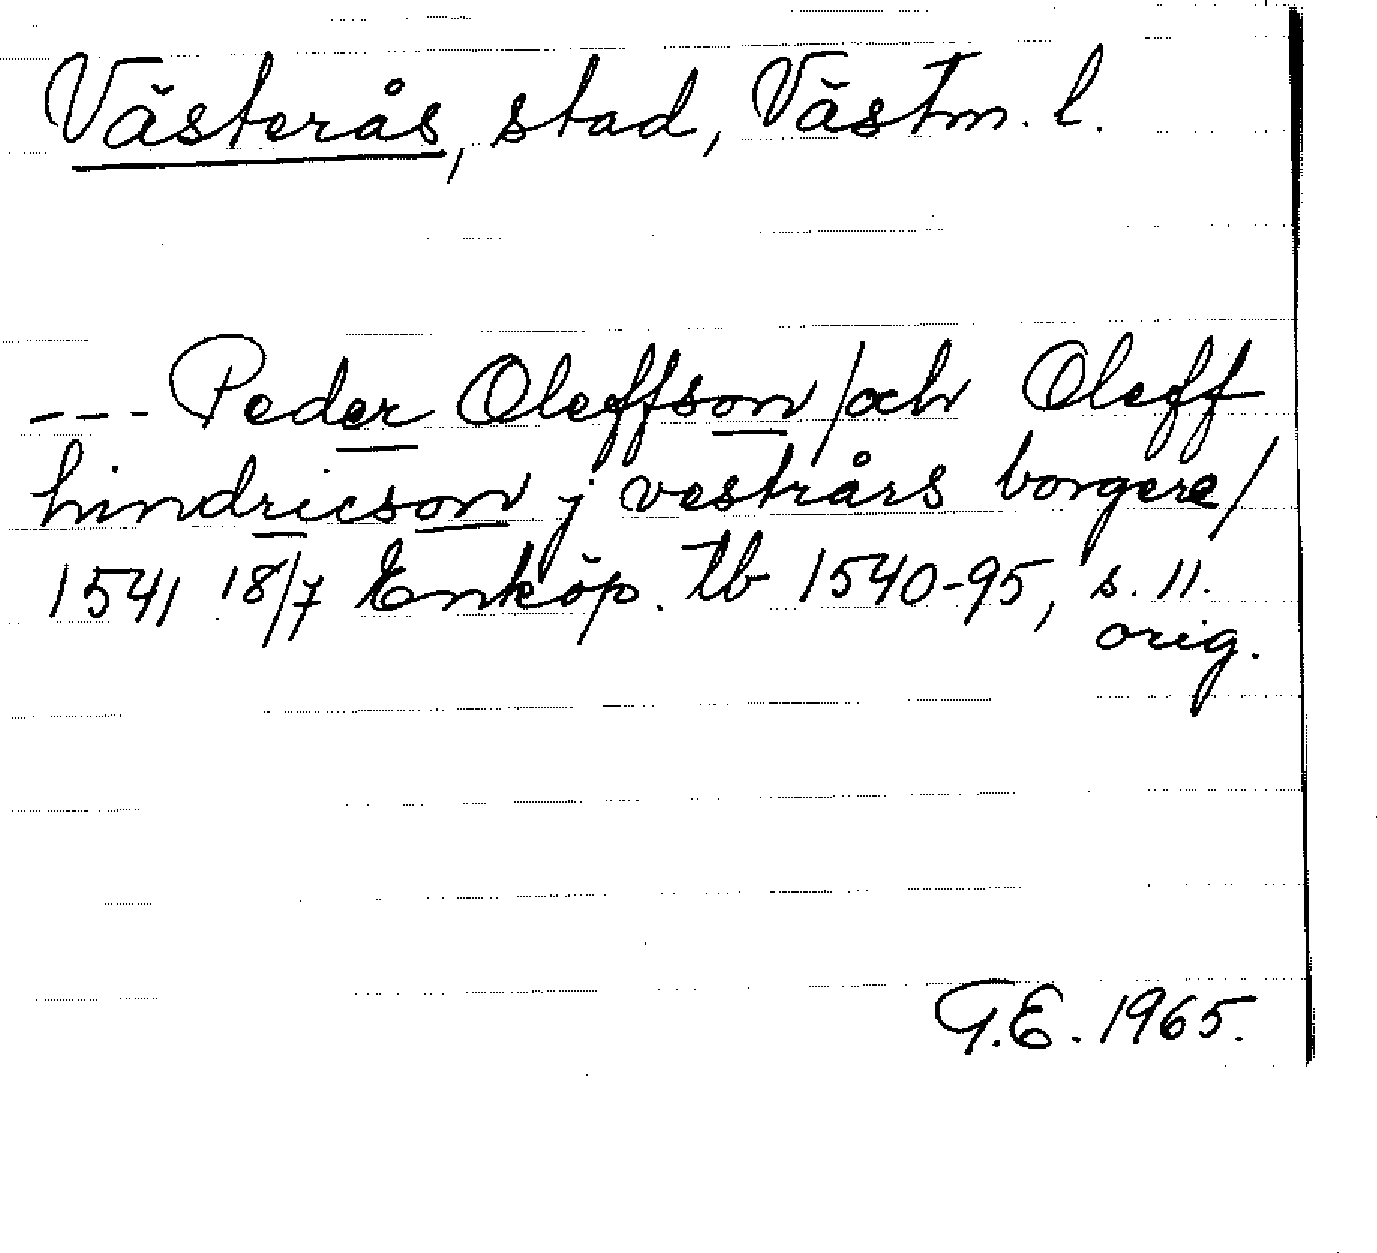 Västerås, stad, Västm. l.
--- Peder Oleffson / och Oleff
hindricson j vestrårs borgere /
1541 18/7 Enköp. tb 1540-95, s. 11.
orig.
G.E. 1965.